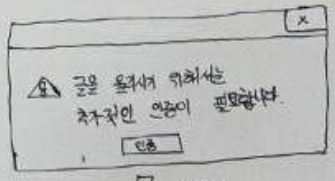 X
글을 옮기시기 위해서는
추가적인 인증이 필요합니다.
인증